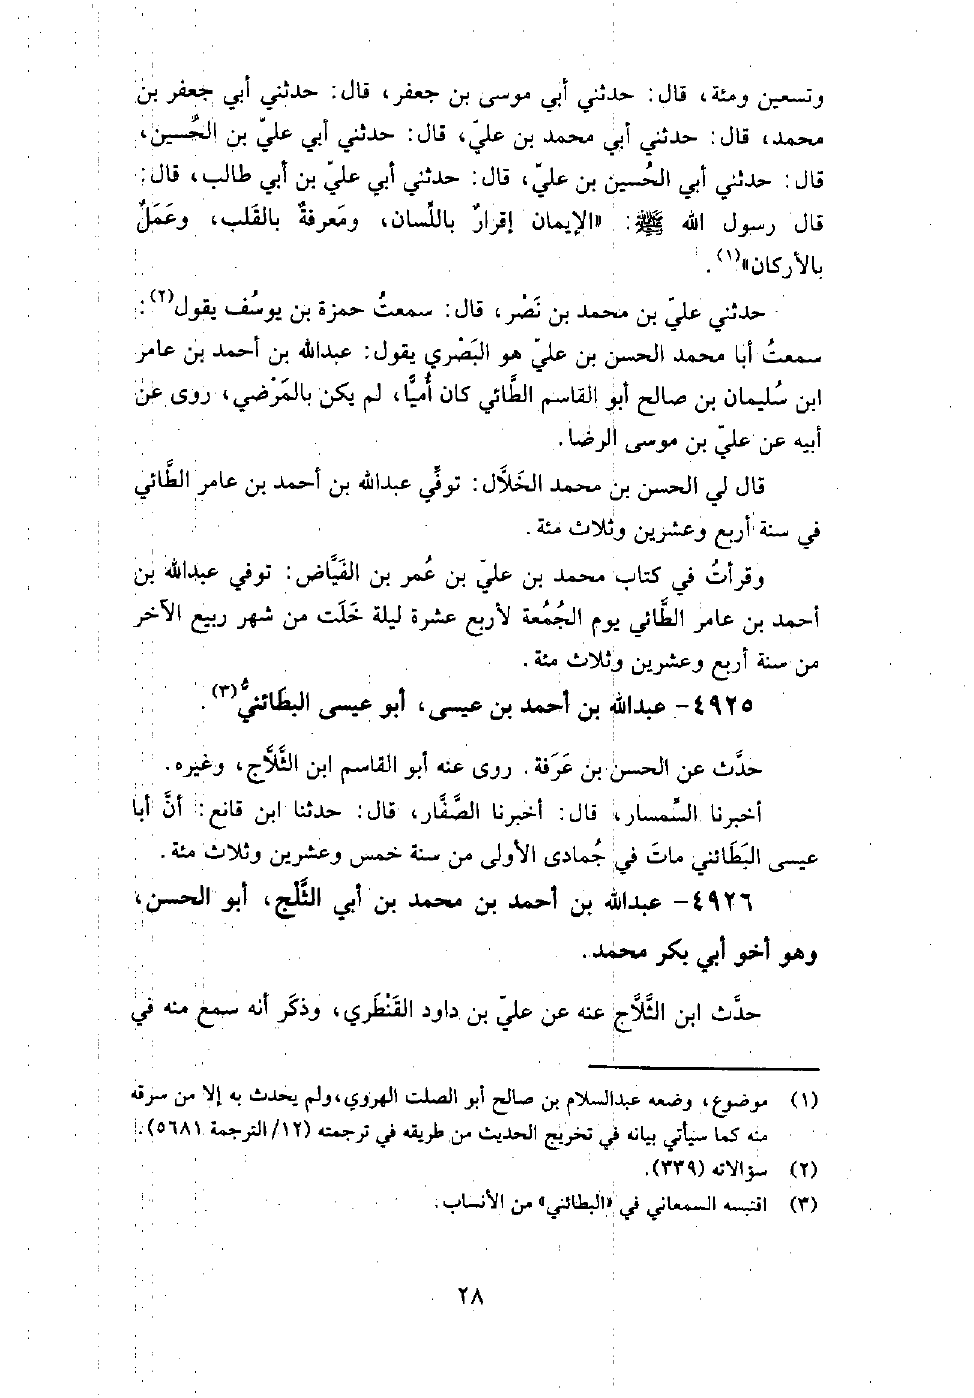 وتسعين ومئة، قال: حدثني أبي موسى بن جعفر، قال: حدثني أبي جعفر بن
محمد، قال: حدثني أبي محمد بن عليّ، قال: حدثني أبي عليّ بن الحُسين،
قال: حدثني أبي الحُسين بن عليّ، قال: حدثني أبي عليّ بن أبي طالب، قال:
قال رسول الله ﷺ: «الإيمان إقرارٌ باللِّسان، ومَعرفةٌ بالقَلب، وعَمَلٌ
بالأركان»(١).
حدثني عليّ بن محمد بن نَصْر، قال: سمعتُ حمزة بن يوسُف يقول(٢):
سمعتُ أبا محمد الحسن بن عليّ هو البَصْري يقول: عبدالله بن أحمد بن عامر
ابن سُليمان بن صالح أبو القاسم الطَّائي كان أُميًّا، لم يكن بالمَرْضي، روى عن
أبيه عن عليّ بن موسى الرضا.
قال لي الحسن بن محمد الخَلَّال: توفِّي عبدالله بن أحمد بن عامر الطَّائي
في سنة أربع وعشرين وثلاث مئة.
وقرأتُ في كتاب محمد بن عليّ بن عُمر بن الفَيَّاض: توفي عبدالله بن
أحمد بن عامر الطَّائي يوم الجُمُعة لأربع عشرة ليلة خَلَت من شهر ربيع الآخر
من سنة أربع وعشرين وثلاث مئة.
٤٩٢٥- عبدالله بن أحمد بن عيسى، أبو عيسى البطَائنيُّ(٣).
حدَّث عن الحسن بن عَرَفة. روى عنه أبو القاسم ابن الثَّلَّاج، وغيره.
أخبرنا السِّمسار، قال: أخبرنا الصَّفَّار، قال: حدثنا ابن قانع: أنَّ أبا
عيسى البَطَائني ماتَ في جُمادى الأولى من سنة خمس وعشرين وثلاث مئة.
٤٩٢٦- عبدالله بن أحمد بن محمد بن أبي الثَّلْج، أبو الحسن،
وهو أخو أبي بكر محمد.
حدَّث ابن الثَّلَّاج عنه عن عليّ بن داود القَنْطَري، وذكَر أنه سمع منه في
(١) موضوع، وضعه عبدالسلام بن صالح أبو الصلت الهروي، ولم يحدث به إلا من سرقه
منه كما سيأتي بيانه في تخريج الحديث من طريقه في ترجمته (١٢/ الترجمة ٥٦٨١).
(٢) سؤالاته (٣٣٩).
(٣) اقتبسه السمعاني في «البطائني» من الأنساب.
٢٨